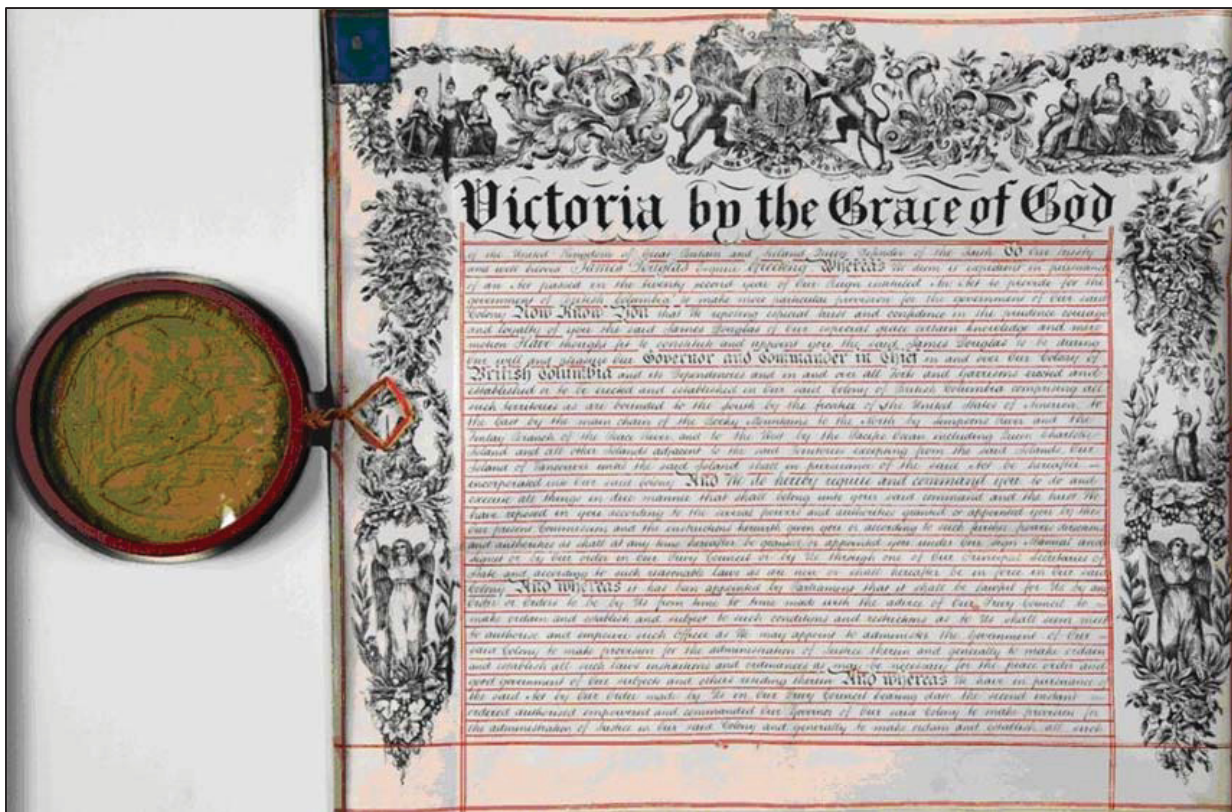 Victoria by the Grace of God
of the United Kingdom of Great Britain and Ireland Queen Defender of the Faith To Our trusty
and well beloved James Douglas Esquire Greeting Whereas We deem it expedient in pursuance
of an Act passed in the twenty second year of Our Reign intituled An Act to provide for the
government of British Columbia to make more particular provision for the government of Our said
Colony Now Know You that We reposing especial trust and confidence in the prudence courage
and loyalty of you the said James Douglas of Our especial grace certain knowledge and mere
motion Have thought fit to constitute and appoint you the said James Douglas to be during
Our will and pleasure Our Governor and Commander in Chief in and over Our Colony of
British Columbia and its Dependencies and in and over all Forts and Garrisons erected and
established or to be erected and established in Our said Colony of British Columbia comprising all
such territories as are bounded to the South by the frontier of The United States of America to
the East by the main chain of the Rocky Mountains to the North by Simpsons River and the
Finlay Branch of the Peace River and to the West by the Pacific Ocean including Queen Charlotte
Island and all other Islands adjacent to the said Territories excepting from the said Islands Our
Island of Vancouver until the said Island shall in pursuance of the said Act be hereafter
incorporated into Our said Colony And We do hereby require and command you to do and
execute all things in due manner that shall belong unto your said command and the trust We
have reposed in you according to the several powers and authorities granted or appointed you by this
Our present Commission and the instructions herewith given you or according to such further powers
and authorities as shall at any time hereafter be granted or appointed you under Our Sign Manual and
Signet or by Our order in Our Privy Council or by Us through one of Our Principal Secretaries of
State and according to such reasonable laws as are now or shall hereafter be in force in Our said
Colony And whereas it has been appointed by Parliament that it shall be lawful for Us by any
Order or Orders to be by Us from time to time made with the advice of Our Privy Council to
make ordain and establish and subject to such conditions and restrictions as to Us shall seem meet
to authorise and empower such Officer as We may appoint to administer the Government of Our
said Colony to make provision for the administration of Justice therein and generally to make ordain
and establish all such laws institutions and ordinances as may be necessary for the peace order and
good government of Our subjects and others residing therein And whereas We have in pursuance of
the said Act by Our Order made by Us in Our Privy Council bearing date the second instant
ordered authorised empowered and commanded Our Governor of Our said Colony to make provision for
the administration of Justice in Our said Colony and generally to make ordain and establish all such